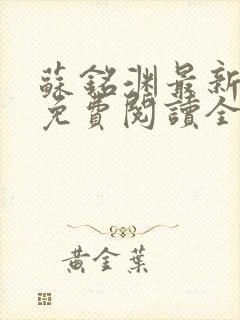 蘇銘淵最新
免費閱讀全
黃金葉